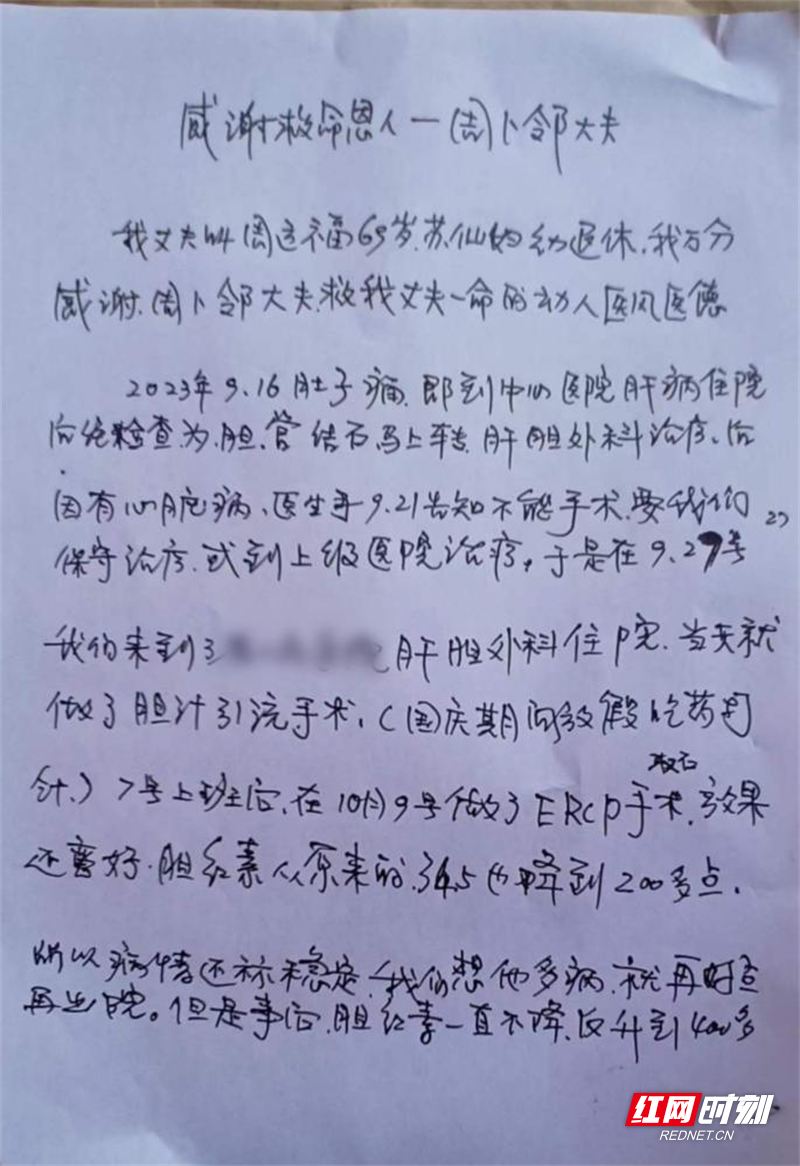 感谢救命恩人一周卜邻大夫
我丈夫叫周运福69岁.苏仙的幼退休.我万分
感谢.周卜邻大夫.救我丈夫一命的动人医风医德
2023年9.16肚子痛.即到中心医院肝病住院
后经检查为.胆.管结石.马上转.肝胆外科治疗、后
因有心脏病、医生于9.21告知不能手术.要我们
保守治疗.或到上级医院治疗。于是在9.27号
27
我们来到了 肝胆外科住院.当天就
做了胆汁引流手术.（国庆期间放假吃药打
针.）7号上班后.在10月9号做了ERCP取石手术.效果
还蛮好.胆红素从原来的.345也降到200多点.
所以病情还稳定.我们想他多病.就再好些
再出院。但是事后.胆红素一直不降.反升到400多
红网时刻
REDNET.CN